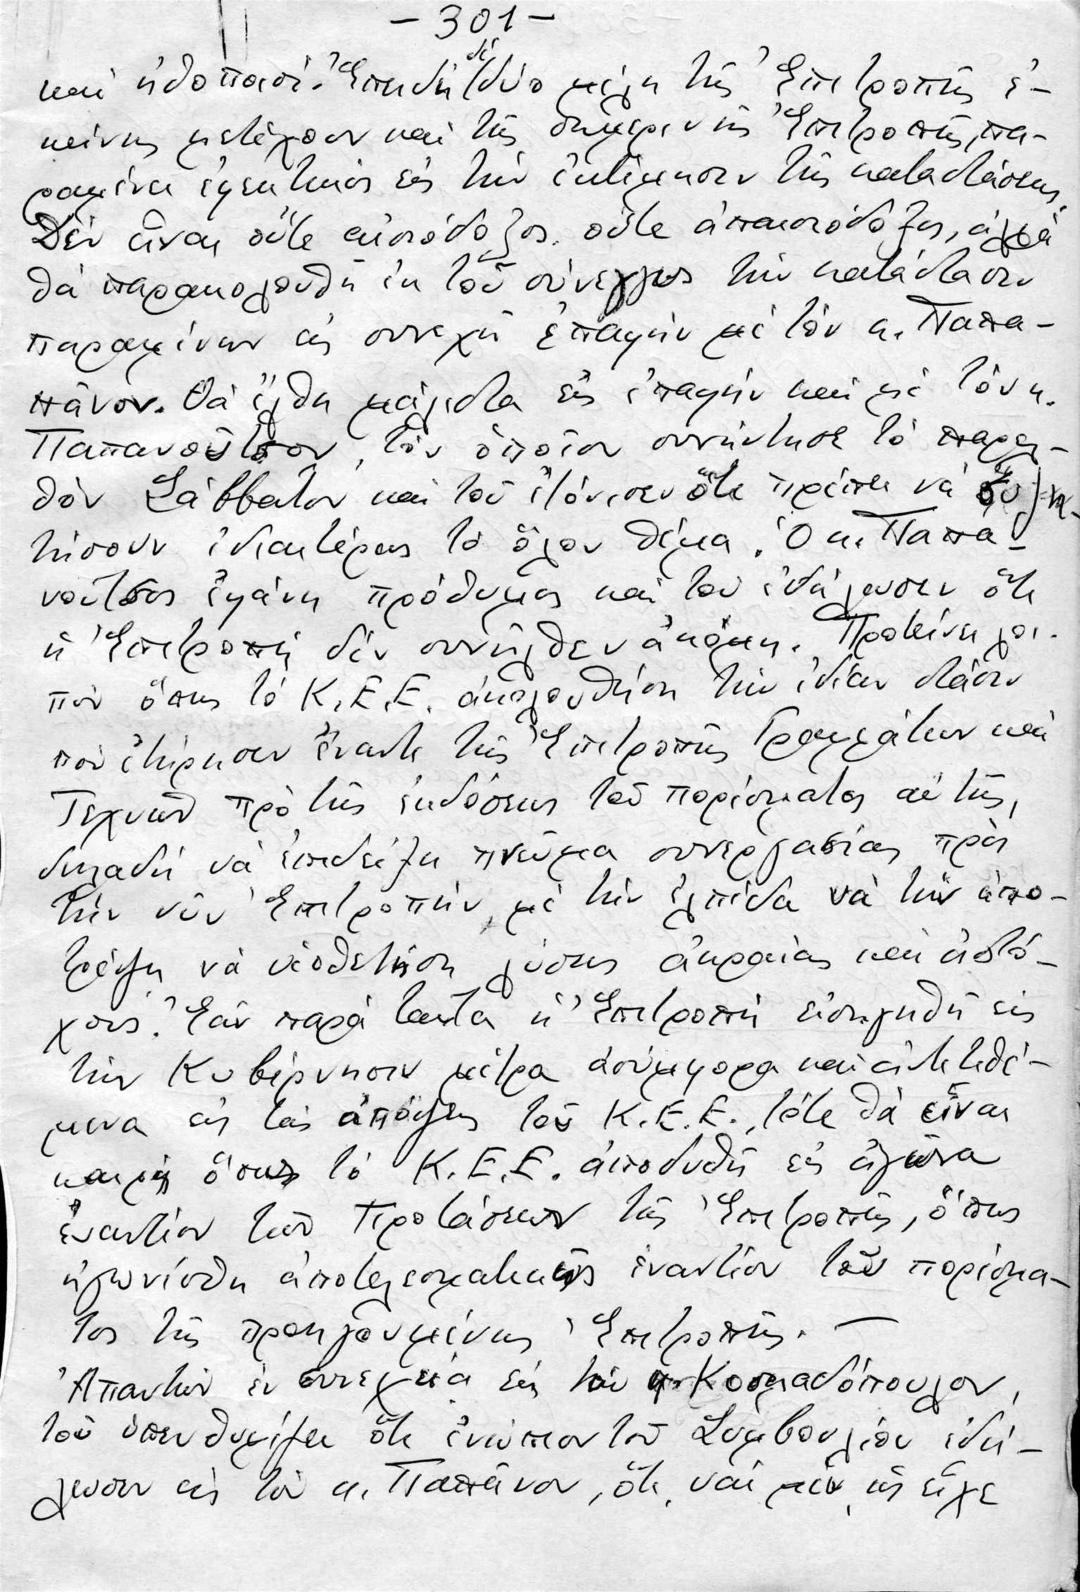 - 301 -
καὶ ἠθοποιοί. Ἐπειδὴ δὲ δύο μέλη τῆς Ἐπιτροπῆς ἐ-
κείνης μετέχουν καὶ τῆς σημερινῆς Ἐπιτροπῆς, πα-
ραμένει ἐφεκτικὸς εἰς τὴν ἐκτίμησιν τῆς καταστάσεως.
Δὲν εἶναι οὔτε αἰσιόδοξος, οὔτε ἀπαισιόδοξος, ἀλλὰ
θὰ παρακολουθῇ ἐκ τοῦ σύνεγγυς τὴν κατάστασιν
παραμένων εἰς συνεχῆ ἐπαφὴν μὲ τὸν κ. Παπα-
πάνον. Θὰ ἔλθῃ μάλιστα εἰς ἐπαφὴν καὶ μὲ τὸν κ.
Παπανοῦτσον, τὸν ὁποῖον συνήντησε τὸ παρελ-
θὸν Σάββατον καὶ τοῦ ἐτόνισεν ὅτι πρέπει νὰ συζη-
τήσουν ἰδιαιτέρως τὸ ὅλον θέμα. Ὁ κ. Παπα-
νοῦτσος ἐφάνη πρόθυμος καὶ τοῦ ἐδήλωσεν ὅτι
ἡ Ἐπιτροπὴ δὲν συνῆλθεν ἀκόμη. Προτείνει λοι-
πὸν ὅπως τὸ Κ.Ε.Ε. ἀκολουθήσῃ τὴν ἰδίαν στάσιν
ποὺ ἐτήρησεν ἔναντι τῆς Ἐπιτροπῆς Γραμμάτων καὶ
Τεχνῶν πρὸ τῆς ἐκδόσεως τοῦ πορίσματος αὐτῆς,
δηλαδὴ νὰ ἐπιδείξῃ πνεῦμα συνεργασίας πρὸς
τὴν νῦν Ἐπιτροπήν, μὲ τὴν ἐλπίδα νὰ τὴν ἀπο-
τρέψῃ νὰ υἱοθετήσῃ λύσεις ἀκραίας καὶ ἀστό-
χους. Ἐὰν παρὰ ταῦτα ἡ Ἐπιτροπὴ εἰσηγηθῇ εἰς
τὴν Κυβέρνησιν μέτρα ἀσύμφορα καὶ ἀντιτιθέ-
μενα εἰς τὰς ἀπόψεις τοῦ Κ.Ε.Ε., τότε θὰ εἶναι
καιρὸς ὅπως τὸ Κ.Ε.Ε. ἀποδυθῇ εἰς ἀγῶνα
ἐναντίον τῶν Προτάσεων τῆς Ἐπιτροπῆς, ὅπως
ἠγωνίσθη ἀποτελεσματικῶς ἐναντίον τοῦ πορίσμα-
τος τῆς προηγουμένης Ἐπιτροπῆς. —
Ἀπαντῶν ἐν συνεχείᾳ εἰς τὸν κ. Κοσμαδόπουλον,
τοῦ ὑπενθυμίζει ὅτι ἐνώπιον τοῦ Συμβουλίου ἐδή-
λωσεν εἰς τὸν κ. Παπᾶνον, ὅτι, ναὶ μὲν, εἶχε